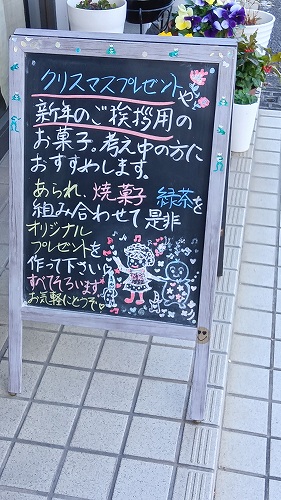 クリスマスプレゼントや
新年のご挨拶用の
お菓子。考え中の方に
おすすめします。
あられ、焼菓子 緑茶を
組み合わせて是非
オリジナル
プレゼントを
作って下さい
すべてそろいます
お気軽にどうぞ